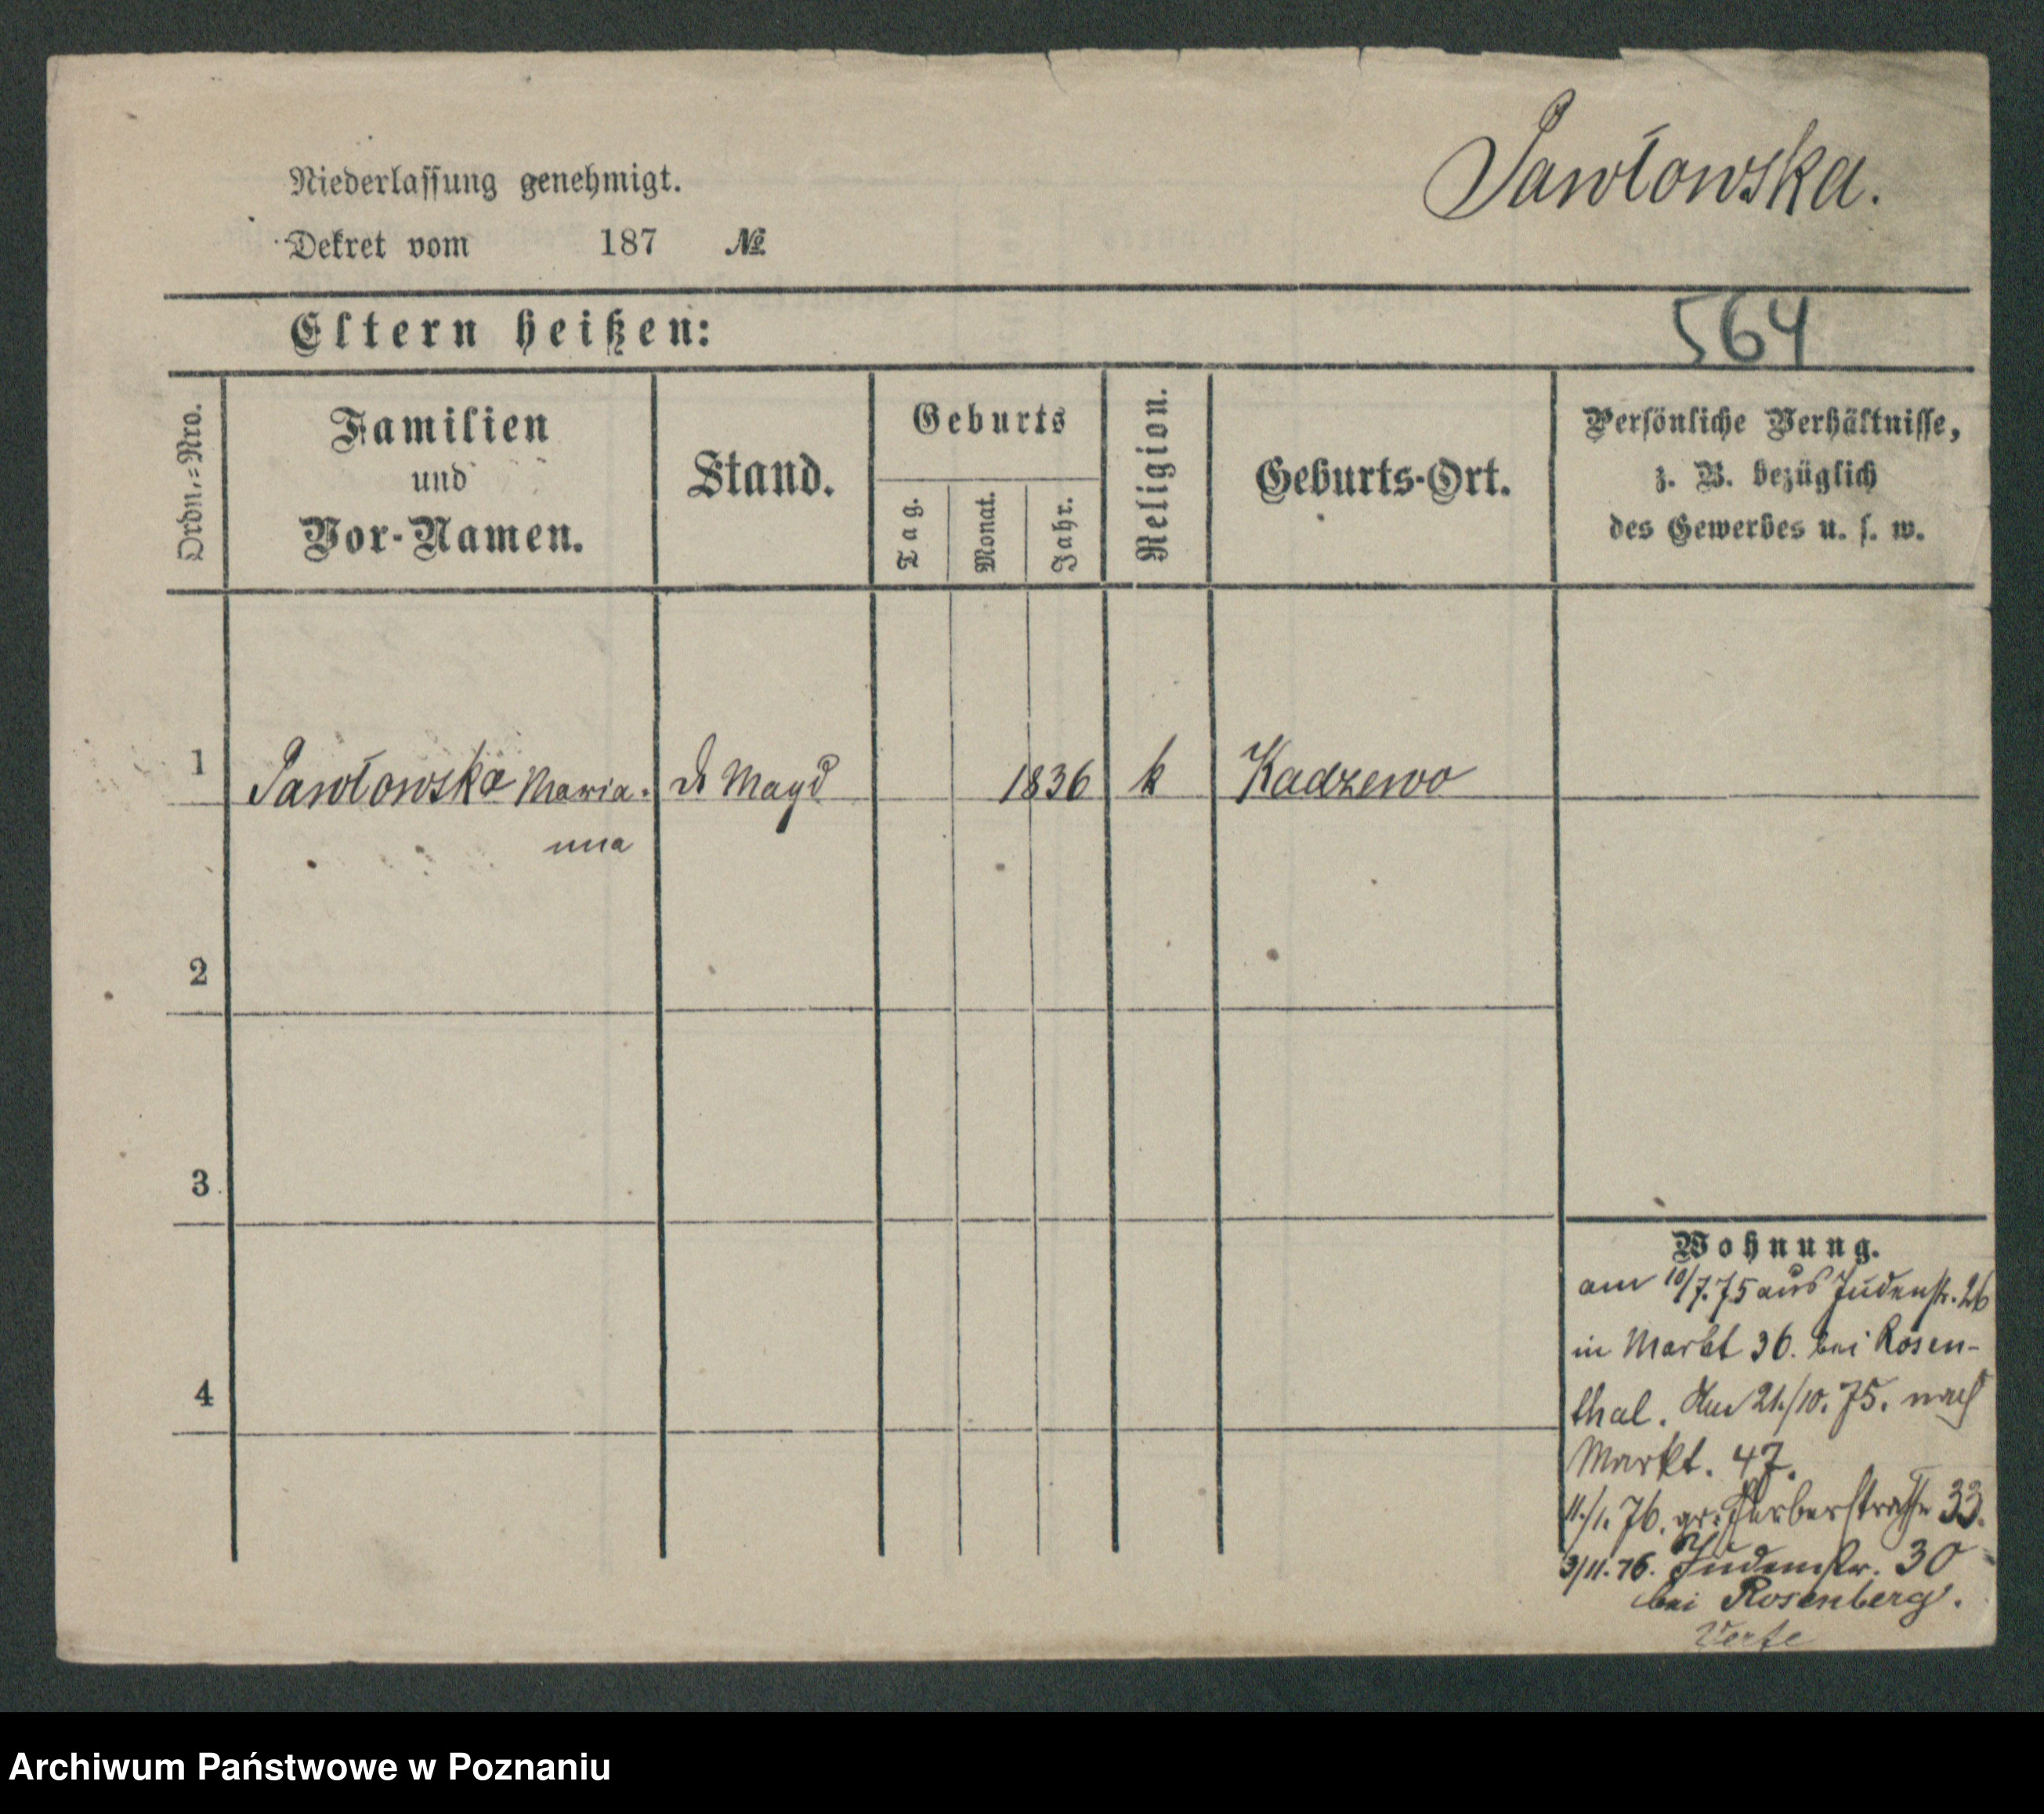 Pawłowska.
Niederlassung genehmigt.
Dekret vom 187 №
Eltern heißen:
564
Ordn.=Nro.
Familien
und
Vor-Namen.
Stand.
Geburts
Tag.
Monat.
Jahr.
Religion.
Geburts-Ort.
Persönliche Verhältnisse,
z. B. bezüglich
des Gewerbes u. s. w.
1 Pawłowska Maria- Magd 1836 k Kadzewo
nna
2
3
4
Wohnung.
am 10/7.75 aus Judenstr. 26
in Markt 36. bei Rosen-
thal. Am 21./10.75. nach
Markt. 47.
11./1.76. gr. Gerberstraße 33.
3/11.76. Judenstr. 30
bei Rosenberg.
Archiwum Państwowe w Poznaniu